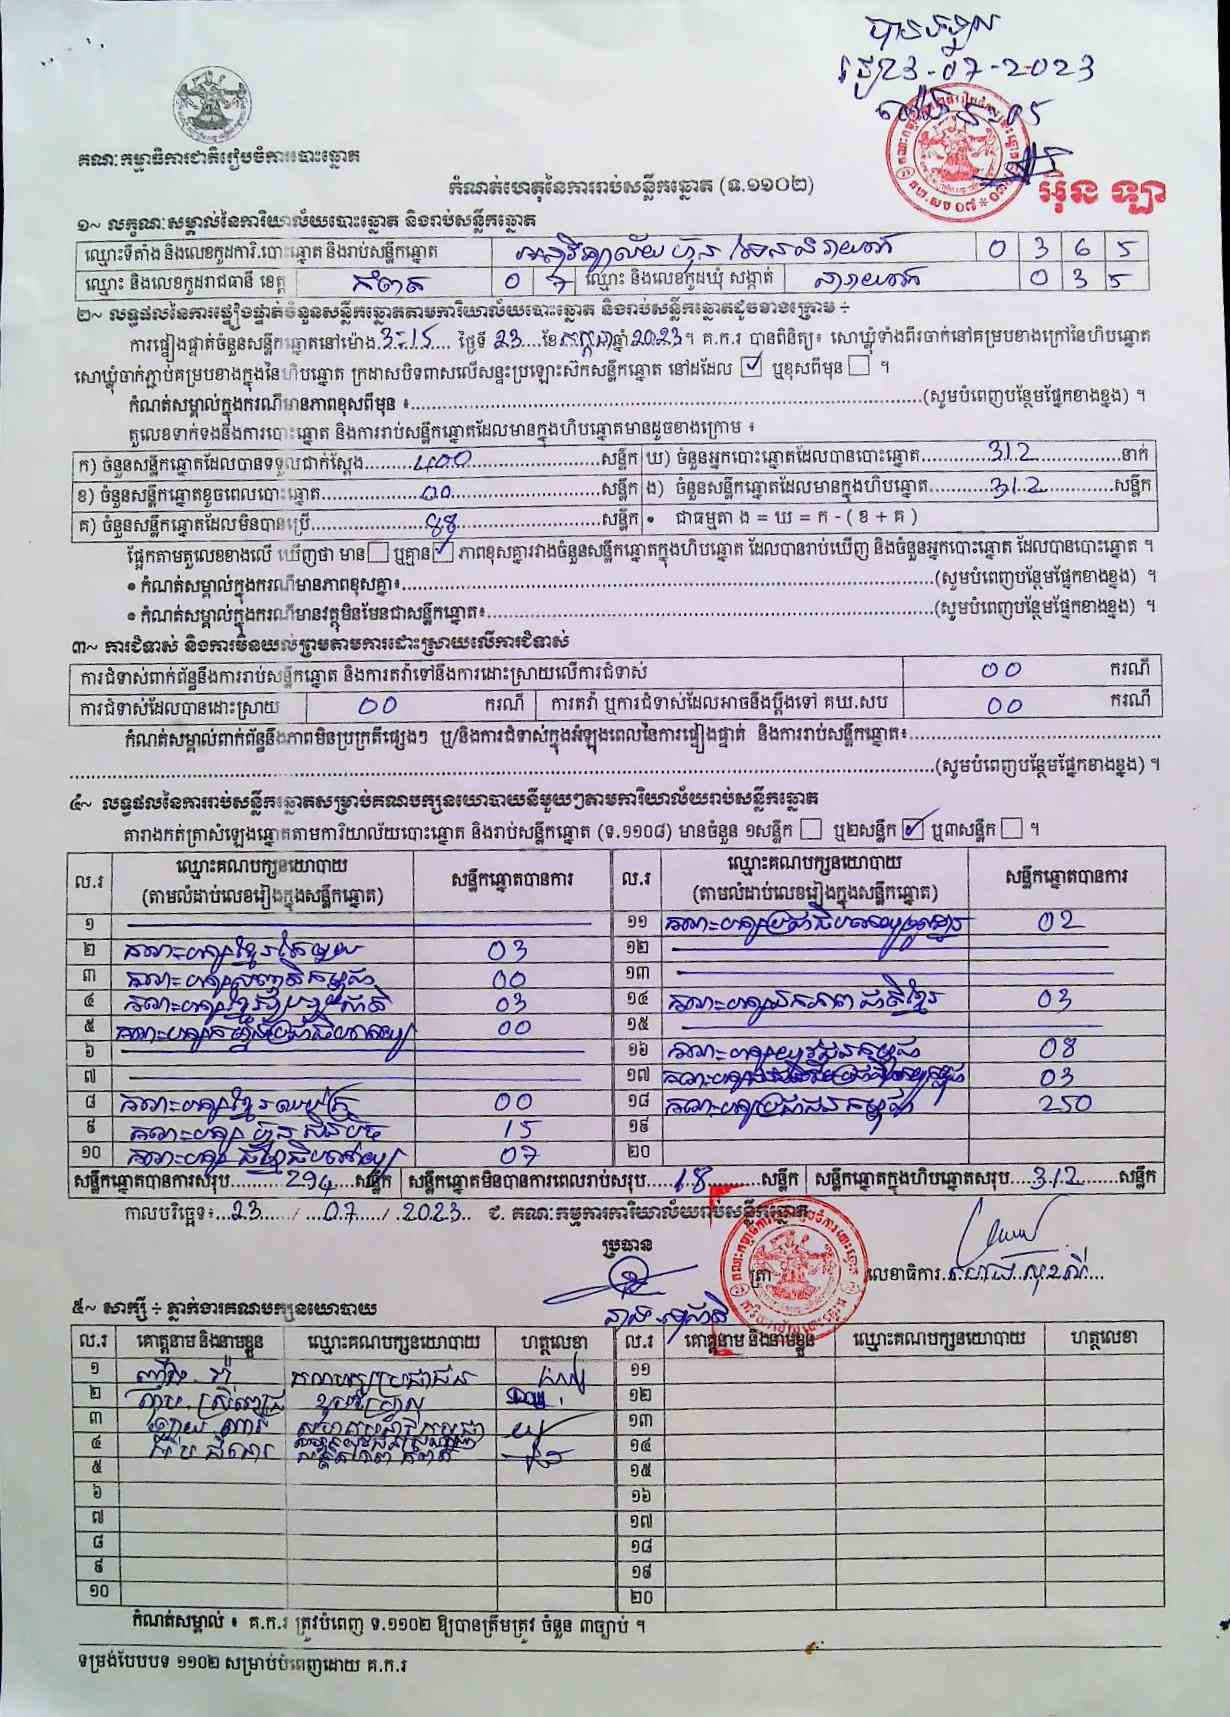 បានទទួល
ថ្ងៃ23-07-2023
គណៈកម្មាធិការជាតិរៀបចំការបោះឆ្នោត
កំណត់ហេតុនៃការរាប់សន្លឹកឆ្នោត (ទ.១១០២)
អ៊ិន ឡា
១~ លក្ខណៈសម្គាល់នៃការិយាល័យបោះឆ្នោត និងរាប់សន្លឹកឆ្នោត
ឈ្មោះទីតាំង និងលេខកូដការិ.បោះឆ្នោត និងរាប់សន្លឹកឆ្នោត 0 3 6 5
ឈ្មោះ និងលេខកូដរាជធានី ខេត្ត កំពត 0 7 ឈ្មោះ និងលេខកូដឃុំ សង្កាត់ 0 3 5
២~ លទ្ធផលនៃការផ្ទៀងផ្ទាត់ចំនួនសន្លឹកឆ្នោតតាមការិយាល័យបោះឆ្នោត និងរាប់សន្លឹកឆ្នោតដូចខាងក្រោម ÷
ការផ្ទៀងផ្ទាត់ចំនួនសន្លឹកឆ្នោតនៅម៉ោង 3:15 ថ្ងៃទី 23 ខែកក្កដាឆ្នាំ 2023។ គ.ក.រ បានពិនិត្យ៖ សោឃ្លុំទាំងពីរចាក់នៅគម្របខាងក្រៅនៃហិបឆ្នោត
សោឃ្លុំចាក់ភ្ជាប់គម្របខាងក្នុងនៃហិបឆ្នោត ក្រដាសបិទពាសលើសន្ទះប្រឡោះស៊កសន្លឹកឆ្នោត នៅដដែល ✓ ឬខុសពីមុន ។
កំណត់សម្គាល់ក្នុងករណីមានភាពខុសពីមុន ៖ (សូមបំពេញបន្ថែមផ្នែកខាងខ្នង) ។
តួលេខទាក់ទងនឹងការបោះឆ្នោត និងការរាប់សន្លឹកឆ្នោតដែលមានក្នុងហិបឆ្នោតមានដូចខាងក្រោម ៖
ក) ចំនួនសន្លឹកឆ្នោតដែលបានទទួលជាក់ស្តែង 400 សន្លឹក ឃ) ចំនួនអ្នកបោះឆ្នោតដែលបានបោះឆ្នោត 312 នាក់
ខ) ចំនួនសន្លឹកឆ្នោតខូចពេលបោះឆ្នោត 00 សន្លឹក ង) ចំនួនសន្លឹកឆ្នោតដែលមានក្នុងហិបឆ្នោត 312 សន្លឹក
គ) ចំនួនសន្លឹកឆ្នោតដែលមិនបានប្រើ 88 សន្លឹក • ជាធម្មតា ង = ឃ = ក - ( ខ + គ )
ផ្អែកតាមតួលេខខាងលើ ឃើញថា មាន ឬគ្មាន ✓ ភាពខុសគ្នារវាងចំនួនសន្លឹកឆ្នោតក្នុងហិបឆ្នោត ដែលបានរាប់ឃើញ និងចំនួនអ្នកបោះឆ្នោត ដែលបានបោះឆ្នោត ។
• កំណត់សម្គាល់ក្នុងករណីមានភាពខុសគ្នា៖ (សូមបំពេញបន្ថែមផ្នែកខាងខ្នង) ។
• កំណត់សម្គាល់ក្នុងករណីមានវត្ថុមិនមែនជាសន្លឹកឆ្នោត៖ (សូមបំពេញបន្ថែមផ្នែកខាងខ្នង) ។
៣~ ការជំទាស់ និងការមិនយល់ព្រមតាមការដោះស្រាយលើការជំទាស់
ការជំទាស់ពាក់ព័ន្ធនឹងការរាប់សន្លឹកឆ្នោត និងការតវ៉ាទៅនឹងការដោះស្រាយលើការជំទាស់ 00 ករណី
ការជំទាស់ដែលបានដោះស្រាយ 00 ករណី ការតវ៉ា ឬការជំទាស់ដែលអាចនឹងប្តឹងទៅ គឃ.សប 00 ករណី
កំណត់សម្គាល់ពាក់ព័ន្ធនឹងភាពមិនប្រក្រតីផ្សេងៗ ឬ/និងការជំទាស់ក្នុងអំឡុងពេលនៃការផ្ទៀងផ្ទាត់ និងការរាប់សន្លឹកឆ្នោត៖
(សូមបំពេញបន្ថែមផ្នែកខាងខ្នង) ។
៤~ លទ្ធផលនៃការរាប់សន្លឹកឆ្នោតសម្រាប់គណបក្សនយោបាយនីមួយៗតាមការិយាល័យរាប់សន្លឹកឆ្នោត
តារាងកត់ត្រាសំឡេងឆ្នោតតាមការិយាល័យបោះឆ្នោត និងរាប់សន្លឹកឆ្នោត (ទ.១១០៨) មានចំនួន ១សន្លឹក ឬ២សន្លឹក ✓ ឬ៣សន្លឹក ។
ល.រ ឈ្មោះគណបក្សនយោបាយ (តាមលំដាប់លេខរៀងក្នុងសន្លឹកឆ្នោត) សន្លឹកឆ្នោតបានការ ល.រ ឈ្មោះគណបក្សនយោបាយ (តាមលំដាប់លេខរៀងក្នុងសន្លឹកឆ្នោត) សន្លឹកឆ្នោតបានការ
១ ១១ 02
២ គណៈបក្សខ្មែរតែមួយ 03 ១២
៣ 00 ១៣
៤ 03 ១៤ គណៈបក្សឯកភាពជាតិខ្មែរ 03
៥ 00 ១៥
៦ ១៦ គណៈបក្សយុវជនកម្ពុជា 08
៧ ១៧ 03
៨ គណៈបក្សខ្មែរឈប់ក្រ 00 ១៨ គណៈបក្សប្រជាជនកម្ពុជា 250
៩ គណៈបក្សហ៊្វុនស៊ិនប៉ិច 15 ១៩
១០ 07 ២០
សន្លឹកឆ្នោតបានការសរុប 294 សន្លឹក សន្លឹកឆ្នោតមិនបានការពេលរាប់សរុប 18 សន្លឹក សន្លឹកឆ្នោតក្នុងហិបឆ្នោតសរុប 312 សន្លឹក
កាលបរិច្ឆេទ៖ 23 / 07 / 2023 ជ. គណៈកម្មការការិយាល័យរាប់សន្លឹកឆ្នោត
ប្រធាន
ត្រា លេខាធិការ
៥~ សាក្សី ÷ ភ្នាក់ងារគណបក្សនយោបាយ
ល.រ គោត្តនាម និងនាមខ្លួន ឈ្មោះគណបក្សនយោបាយ ហត្ថលេខា ល.រ គោត្តនាម និងនាមខ្លួន ឈ្មោះគណបក្សនយោបាយ ហត្ថលេខា
១ គណបក្សប្រជាជន ១១
២ ១២
៣ ១៣
៤ ១៤
៥ ១៥
៦ ១៦
៧ ១៧
៨ ១៨
៩ ១៩
១០ ២០
កំណត់សម្គាល់ ៖ គ.ក.រ ត្រូវបំពេញ ទ.១១០២ ឱ្យបានត្រឹមត្រូវ ចំនួន ៣ច្បាប់ ។
ទម្រង់បែបបទ ១១០២ សម្រាប់បំពេញដោយ គ.ក.រ